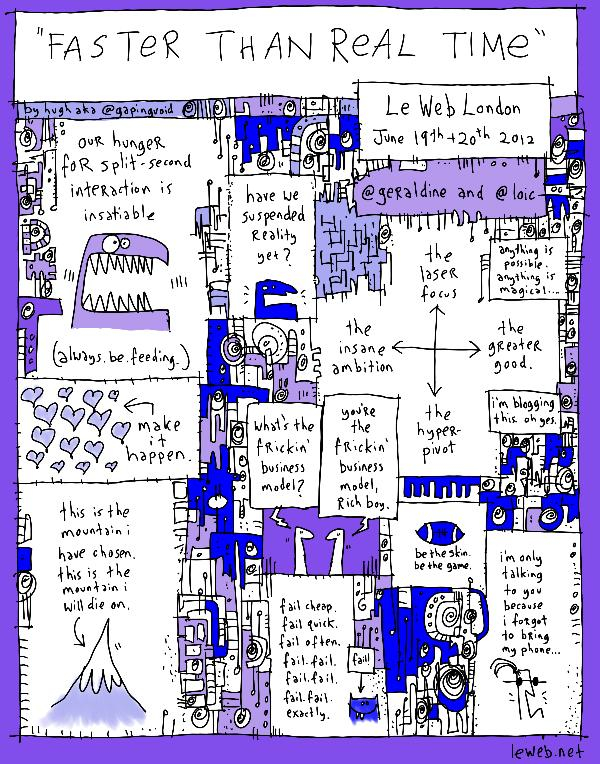 "FASTER THAN REAL TIME"
by hugh aka @gapingvoid
Le Web London
June 19th + 20th 2012
@geraldine and @loic
our hunger
for split-second
interaction is
insatiable
(always.be.feeding.)
have we
suspended
reality
yet?
the
laser
focus
anything is
possible.
anything is
magical...
the
insane
ambition
the
greater
good.
the
hyper-
pivot
make
it
happen.
what's the
frickin'
business
model?
you're
the
frickin'
business
model,
Rich boy.
i'm blogging
this. oh yes.
this is the
mountain i
have chosen.
this is the
mountain i
will die on.
fail cheap.
fail quick.
fail often.
fail. fail.
fail. fail.
fail. fail.
exactly.
fail!
be the skin.
be the game.
i'm only
talking
to you
because
i forgot
to bring
my phone...
leweb.net